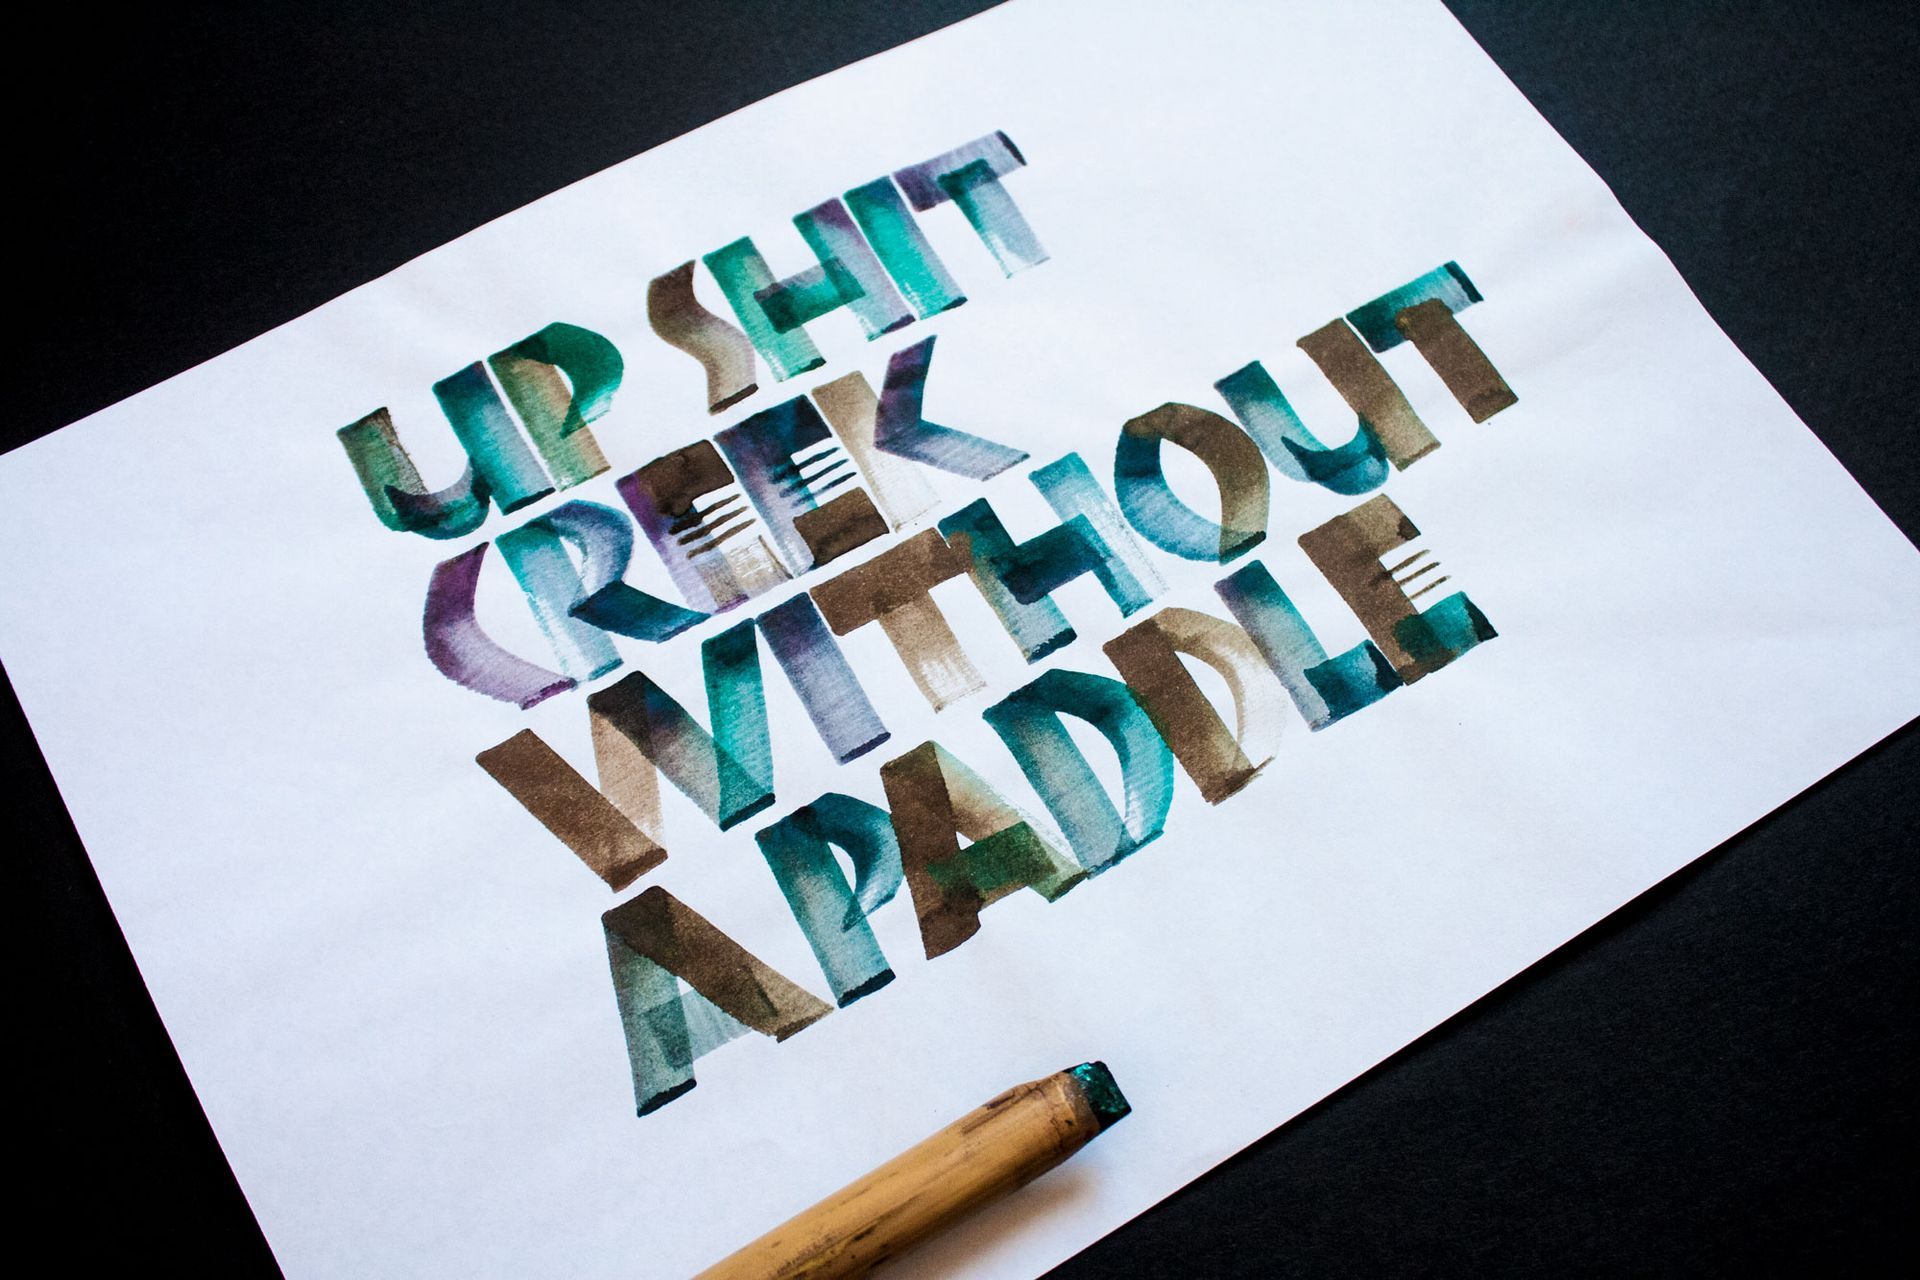 UP SHIT
CREEK
WITHOUT
A PADDLE